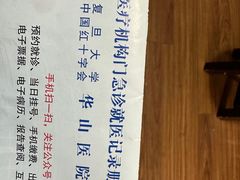 医疗机构门急诊就医记录册
复旦大学
中国红十字会
华山医院
手机扫一扫，关注公众号
预约就诊、当日挂号、手机缴费、出
电子票据、电子病历、报告查阅、互